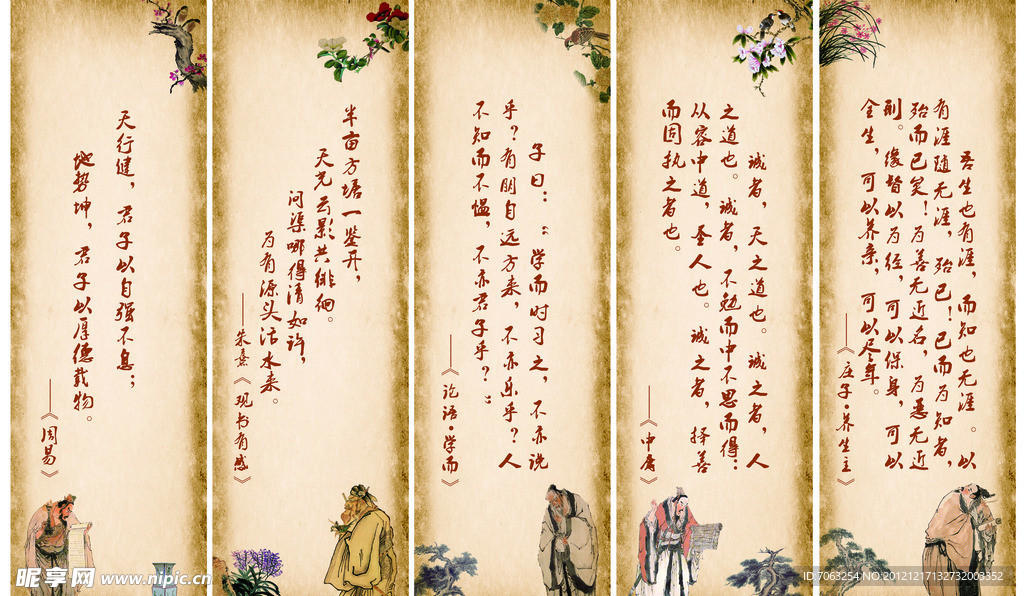 天行健，君子以自强不息；
地势坤，君子以厚德载物。
——《周易》
半亩方塘一鉴开，
天光云影共徘徊。
问渠哪得清如许，
为有源头活水来。
——朱熹《观书有感》
子曰：“学而时习之，不亦说
乎？有朋自远方来，不亦乐乎？人
不知而不愠，不亦君子乎？”
——《论语·学而》
诚者，天之道也。诚之者，人
之道也。诚者，不勉而中不思而得：
从容中道，圣人也。诚之者，择善
而固执之者也。
——《中庸》
吾生也有涯，而知也无涯。以
有涯随无涯，殆已！已而为知者，
殆而已矣！为善无近名，为恶无近
刑。缘督以为经，可以保身，可以
全生，可以养亲，可以尽年。
——《庄子·养生主》
昵享网 www.nipic.cn
ID:7063254 NO:20121217132732003352